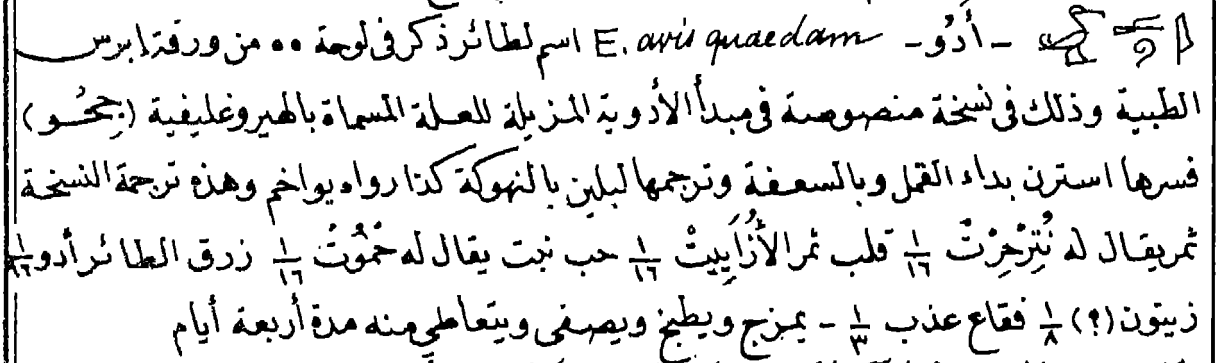 - أَدُو - E. avis quaedam اسم لطائر ذكر فى لوحة ٥٥ من ورقة إبرس
الطبية وذلك فى نسخة منصوصة فى مبدأ الأدوية المزيلة للعلة المسماة بالهيروغليفية (جِحُو)
فسرها استرن بداء القمل وبالسعفة وترجمها لبلين بالنهوكة كذا رواه يواخم وهذه ترجمة النسخة
ثمر يقال له ١/١٦ قلب ثمر ١/١٦ حب نبت يقال له ١/١٦ زرق الطائر أدو ١/١٦
زيتون (؟) ١/٨ فقاع عذب ١/٣ - يمزج ويطبخ ويصفى ويتعاطى منه مدة أربعة أيام